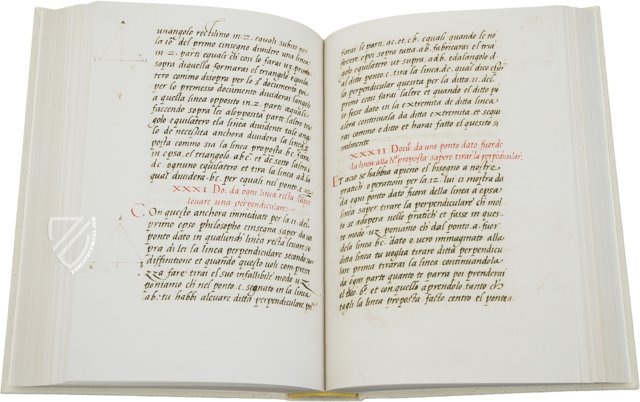 unangolo rectilineo in .2. equali subito per
la 10ª del primo cinsegno dividere una linea
in .2. parti equali ch con lo farai un primo
sopra diquella formarai el triangolo equila
tero commo disopra per lo s.º documento poi
per lo premesso documento dividerai langolo
a quella linea opposito in .2. parti equali
faccendo sopra lei alopposita parte laltro trian
golo equilatero ela linea dividente tale angolo
di necessita anchora dividera la linea
proposta commo sia la linea proposta bc. fam
in epsa el triangolo abc. et di sotto laltro
dc. ognuno equilatero et tira la linea ad la
qual dividera .bc. per equali nel ponto .e.
XXXI Dᵒ. da ogni linea recta saper
levare una perpendiculare.
COn questo anchora immediate per la .11. del
primo epso philosopho cinsegna saper da un
ponto dato in qualunche linea recta levare so
pra di lei la linea perpendiculare secondo sua
diffinitione et quando questo voli com prestez
za fare tirai el suo infallibile modo uz.
poniamo ch nel ponto .c. segnato in la linea
a.b. tu habbi alcuare ditta perpendiculare po
farai le parte .ac. et .cb. equali quando le no
forano. e poi sopra tutta .ab. fabricarai el tria
golo equilatero un sopra .ab. edalangolo d.
al ditto ponto .c. tira la linea .dc. qual dico ch e
la perpendicular quesita per la ditta .11. del
primo ecosi farai laltre et quando el ditto po
nto fosse dato in la extremita de ditta linea
alora continuala da ditta extremita et seq
ra commo e ditto et harai fatto el quesito si
milmente
XXXII Docᵘ. da uno ponto dato fuordi
la linea alla liᵃ proposta saper tirar la perpendicular.
Et acio se habbia apieno el bisogno a nostre
pratich operationi per la .12. lui ci mostra da
ogni ponto dato fuora della linea a epsa
saper tirarli la perpendiculare ch molto
se adopera nelle pratich et fasse in ques
to modo uz. poniamo ch dal ponto .a. fuor
della linea bc. dato o vero immaginato alla
ditta linea tu voglia tirare ditta perpendi
culare prima tirarai la linea continuandola
da ogni parte quanto te parra poi prenderai
el ditto bº et con quello aprendolo tanto ch
tagli la linea proposta fatto centro el ponto .a.